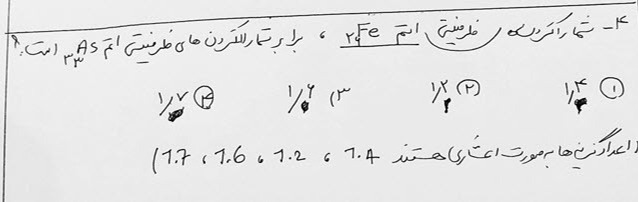 ۴- شمار الکترون‌های ظرفیتی اتم ₂₆Fe ، برابر شمار الکترون های ظرفیتی اتم ₃₃As است؟
۱) ۱/۴ ۲) ۱/۲ ۳) ۱/۶ ۴) ۱/۷
(اعداد گزینه ها به صورت اعشاری هستند 1.4 ، 1.2 ، 1.6 ، 1.7)